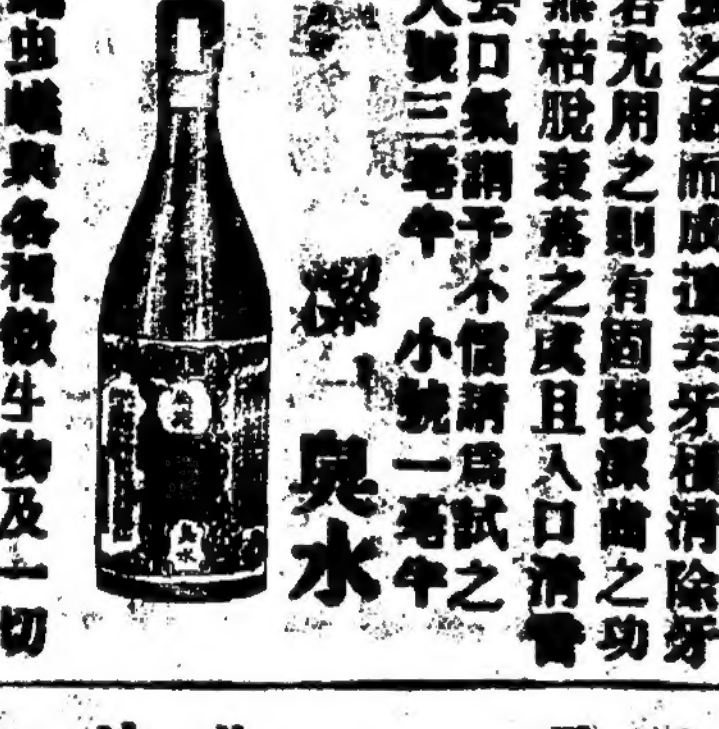 之品而成適去牙根清除牙
若尤用之則有固根潔齒之功
無枯脫衰落之虞且入口清香
去口氣謂予不信請為試之
大號三毫半 小號一毫半
潔 臭水
臭水
虫蟻與各種微生物及一切